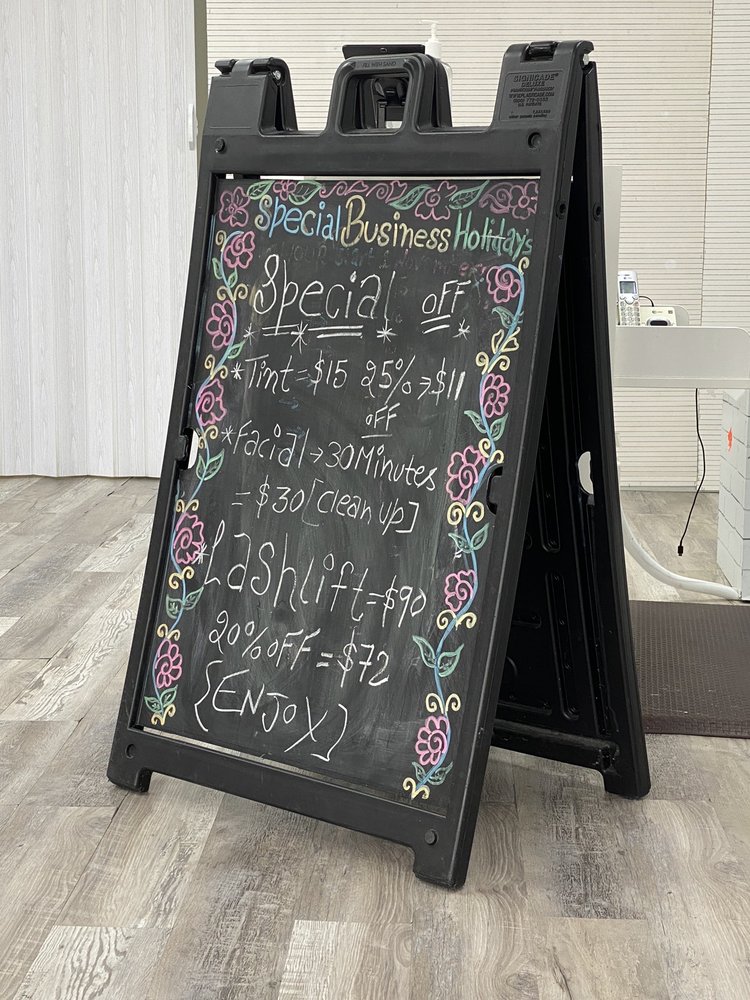 FILL WITH SAND
SIGNICADE
DELUXE
Special Business Holiday's
Special OFF
*Tint = $15 25% → $11
OFF
*Facial → 30 Minutes
= $30 [clean up]
Lashlift = $90
20% OFF = $72
{ENJOY]